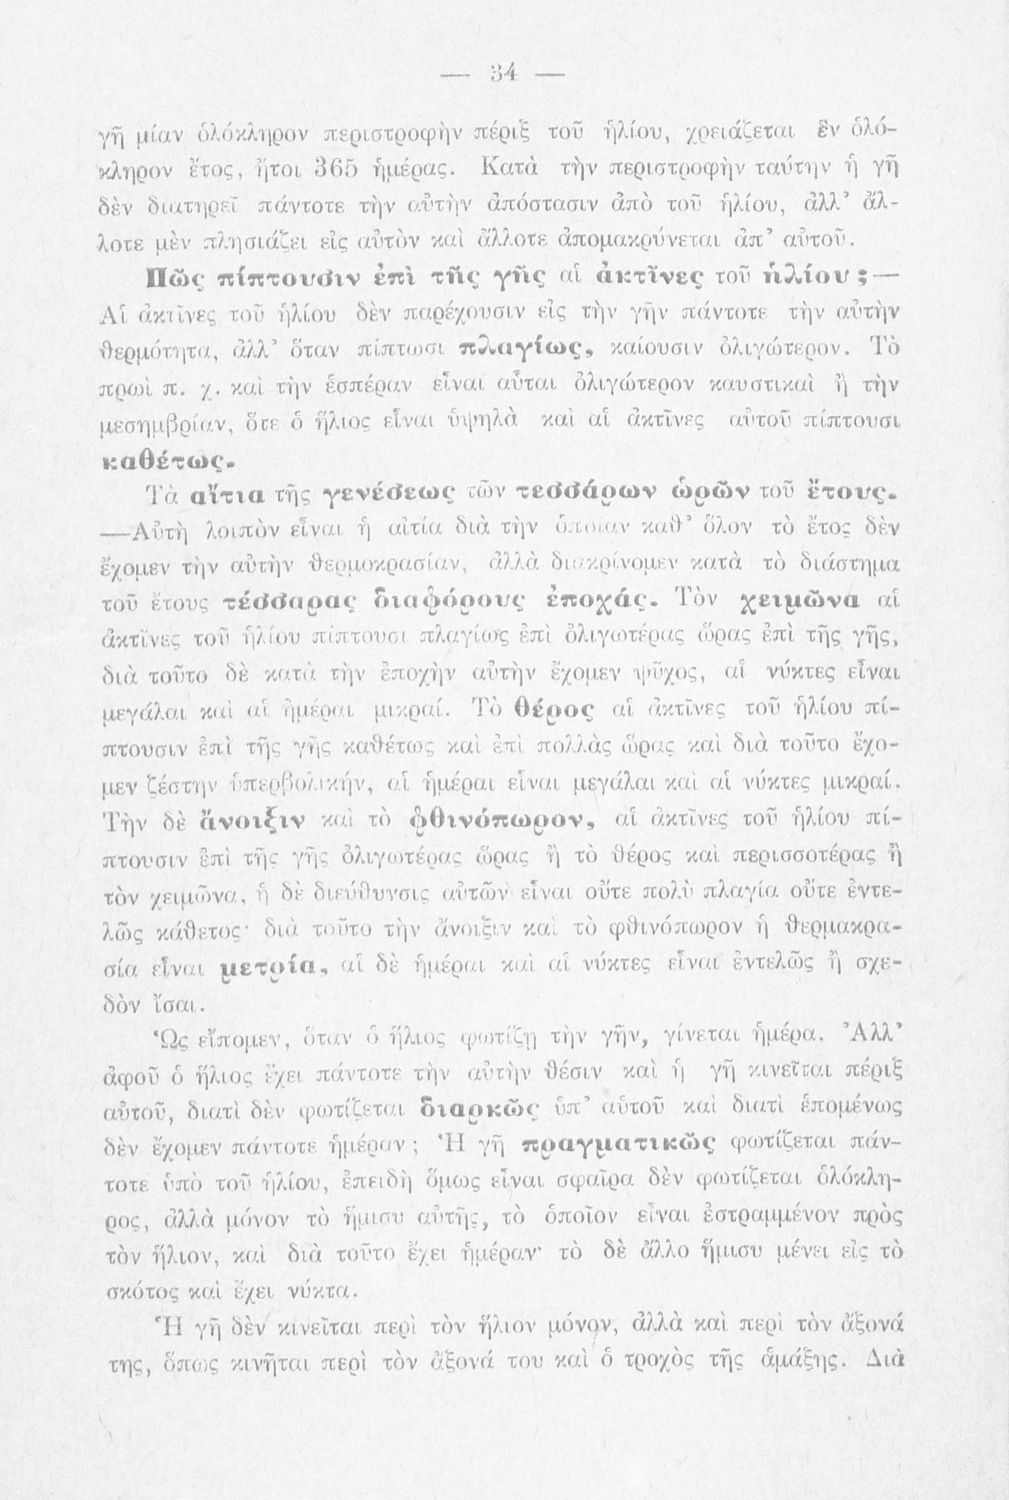 — 34 —
γῆ μίαν ὁλόκληρον περιστροφὴν πέριξ τοῦ ἡλίου, χρειάζεται ἓν ὁλό-
κληρον ἔτος, ἤτοι 365 ἡμέρας. Κατὰ τὴν περιστροφὴν ταύτην ἡ γῆ
δὲν διατηρεῖ πάντοτε τὴν αὐτὴν ἀπόστασιν ἀπὸ τοῦ ἡλίου, ἀλλ’ ἄλ-
λοτε μὲν πλησιάζει εἰς αὐτὸν καὶ ἄλλοτε ἀπομακρύνεται ἀπ’ αὐτοῦ.
Πῶς πίπτουσιν ἐπὶ τῆς γῆς αἱ ἀκτῖνες τοῦ ἡλίου ; —
Αἱ ἀκτῖνες τοῦ ἡλίου δὲν παρέχουσιν εἰς τὴν γῆν πάντοτε τὴν αὐτὴν
θερμότητα, ἀλλ’ ὅταν πίπτωσι πλαγίως, καίουσιν ὀλιγώτερον. Τὸ
πρωὶ π. χ. καὶ τὴν ἑσπέραν εἶναι αὗται ὀλιγώτερον καυστικαὶ ἢ τὴν
μεσημβρίαν, ὅτε ὁ ἥλιος εἶναι ὑψηλὰ καὶ αἱ ἀκτῖνες αὐτοῦ πίπτουσι
καθέτως.
Τὰ αἴτια τῆς γενέσεως τῶν τεσσάρων ὡρῶν τοῦ ἔτους.
—Αὕτη λοιπὸν εἶναι ἡ αἰτία διὰ τὴν ὁποίαν καθ’ ὅλον τὸ ἔτος δὲν
ἔχομεν τὴν αὐτὴν θερμοκρασίαν, ἀλλὰ διακρίνομεν κατὰ τὸ διάστημα
τοῦ ἔτους τέσσαρας διαφόρους ἐποχάς. Τὸν χειμῶνα αἱ
ἀκτῖνες τοῦ ἡλίου πίπτουσι πλαγίως ἐπὶ ὀλιγωτέρας ὥρας ἐπὶ τῆς γῆς,
διὰ τοῦτο δὲ κατὰ τὴν ἐποχὴν αὐτὴν ἔχομεν ψῦχος, αἱ νύκτες εἶναι
μεγάλαι καὶ αἱ ἡμέραι μικραί. Τὸ θέρος αἱ ἀκτῖνες τοῦ ἡλίου πί-
πτουσιν ἐπὶ τῆς γῆς καθέτως καὶ ἐπὶ πολλὰς ὥρας καὶ διὰ τοῦτο ἔχο-
μεν ζέστην ὑπερβολικήν, αἱ ἡμέραι εἶναι μεγάλαι καὶ αἱ νύκτες μικραί.
Τὴν δὲ ἄνοιξιν καὶ τὸ φθινόπωρον, αἱ ἀκτῖνες τοῦ ἡλίου πί-
πτουσιν ἐπὶ τῆς γῆς ὀλιγωτέρας ὥρας ἢ τὸ θέρος καὶ περισσοτέρας ἢ
τὸν χειμῶνα, ἡ δὲ διεύθυνσις αὐτῶν εἶναι οὔτε πολὺ πλαγία οὔτε ἐντε-
λῶς κάθετος· διὰ τοῦτο τὴν ἄνοιξιν καὶ τὸ φθινόπωρον ἡ θερμακρα-
σία εἶναι μετρία, αἱ δὲ ἡμέραι καὶ αἱ νύκτες εἶναι ἐντελῶς ἢ σχε-
δὸν ἴσαι.
Ὡς εἴπομεν, ὅταν ὁ ἥλιος φωτίζῃ τὴν γῆν, γίνεται ἡμέρα. Ἀλλ’
ἀφοῦ ὁ ἥλιος ἔχει πάντοτε τὴν αὐτὴν θέσιν καὶ ἡ γῆ κινεῖται πέριξ
αὐτοῦ, διατὶ δὲν φωτίζεται διαρκῶς ὑπ’ αὐτοῦ καὶ διατὶ ἑπομένως
δὲν ἔχομεν πάντοτε ἡμέραν ; Ἡ γῆ πραγματικῶς φωτίζεται πάν-
τοτε ὑπὸ τοῦ ἡλίου, ἐπειδὴ ὅμως εἶναι σφαῖρα δὲν φωτίζεται ὁλόκλη-
ρος, ἀλλὰ μόνον τὸ ἥμισυ αὐτῆς, τὸ ὁποῖον εἶναι ἐστραμμένον πρὸς
τὸν ἥλιον, καὶ διὰ τοῦτο ἔχει ἡμέραν· τὸ δὲ ἄλλο ἥμισυ μένει εἰς τὸ
σκότος καὶ ἔχει νύκτα.
Ἡ γῆ δὲν κινεῖται περὶ τὸν ἥλιον μόνον, ἀλλὰ καὶ περὶ τὸν ἄξονά
της, ὅπως κινῆται περὶ τὸν ἄξονά του καὶ ὁ τροχὸς τῆς ἁμάξης. Διὰ